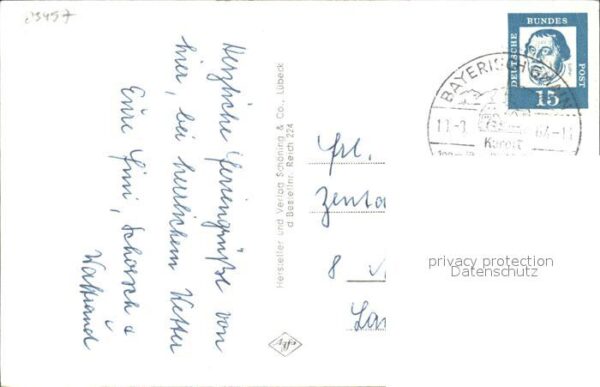 23457
Herzliche Feriengrüße von
hier, bei herrlichem Wetter
Eure Finni, Schorsch +
Waltraud
Hersteller und Verlag Schöning & Co., Lübeck
d Bestellnr. Reich 224
Frl.
Zenta
8
DEUTSCHE
BUNDES
POST
15
BAYERISCH GMAIN
Kurort
privacy protection
Datenschutz